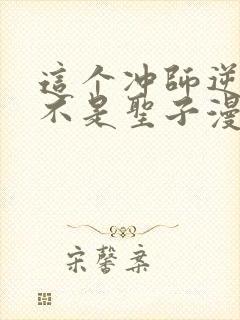 這个冲師逆
不是聖子漫
宋馨棄